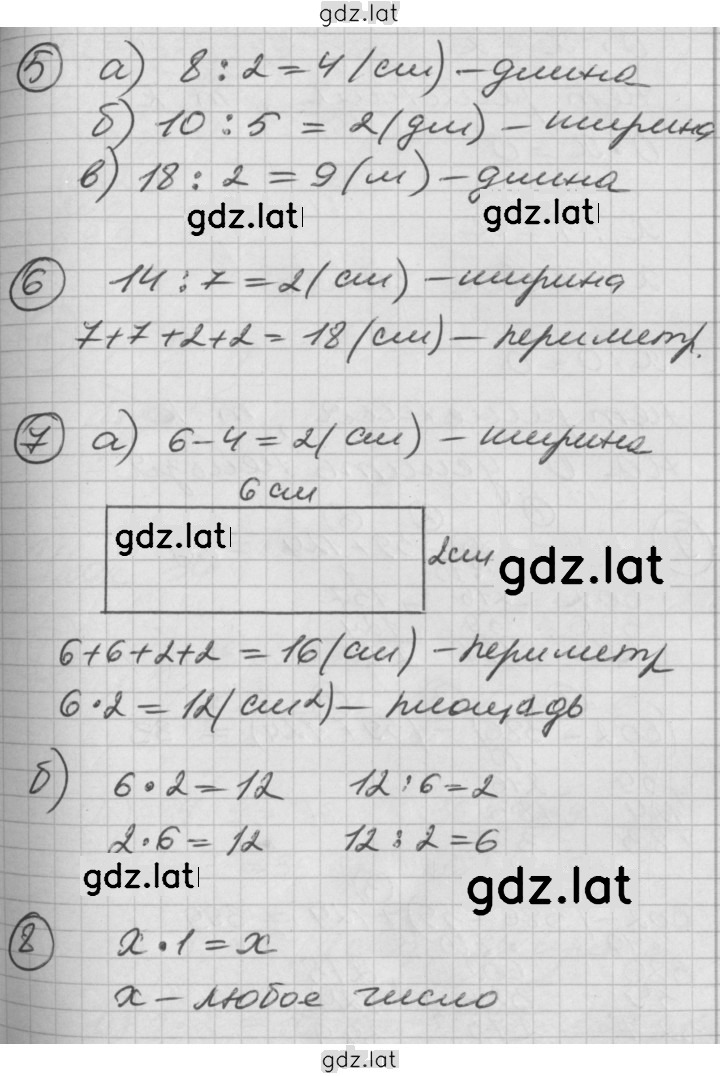 gdz.lat
5 а) 8 : 2 = 4 (см) – длина
б) 10 : 5 = 2 (дм) – ширина
в) 18 : 2 = 9 (м) – длина
gdz.lat gdz.lat
6 14 : 7 = 2 (см) – ширина
7+7+2+2 = 18 (см) – периметр.
7 а) 6 – 4 = 2 (см) – ширина
6 см
gdz.lat 2см gdz.lat
6+6+2+2 = 16 (см) – периметр
6 · 2 = 12 (см2) – площадь
б) 6 · 2 = 12 12 : 6 = 2
2 · 6 = 12 12 : 2 = 6
gdz.lat gdz.lat
8 x · 1 = x
x – любое число
gdz.lat